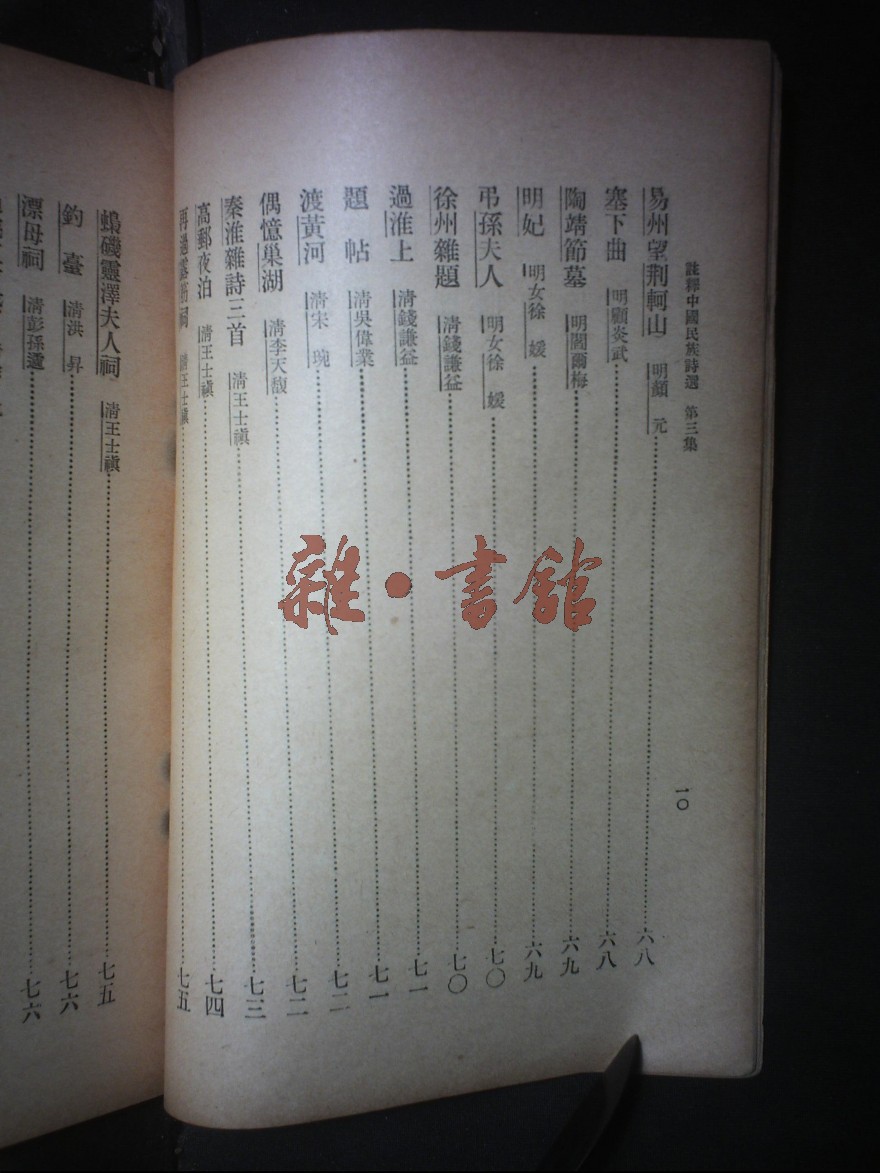 註釋中國民族詩選 第三集
一〇
易州望荆軻山 明顏 元 六八
塞下曲 明顧炎武 六八
陶靖節墓 明閻爾梅 六九
明妃 明女徐 媛 六九
弔孫夫人 明女徐 媛 七〇
徐州雜題 清錢謙益 七〇
過淮上 清錢謙益 七一
題帖 清吳偉業 七一
渡黃河 清宋 琬 七二
偶憶巢湖 清李天馥 七二
秦淮雜詩三首 清王士禛 七三
高郵夜泊 清王士禛 七四
再過露筋祠 清王士禛 七五
蟂磯靈澤夫人祠 清王士禛 七五
釣臺 清洪 昇 七六
漂母祠 清彭孫遹 七六
雜·書館